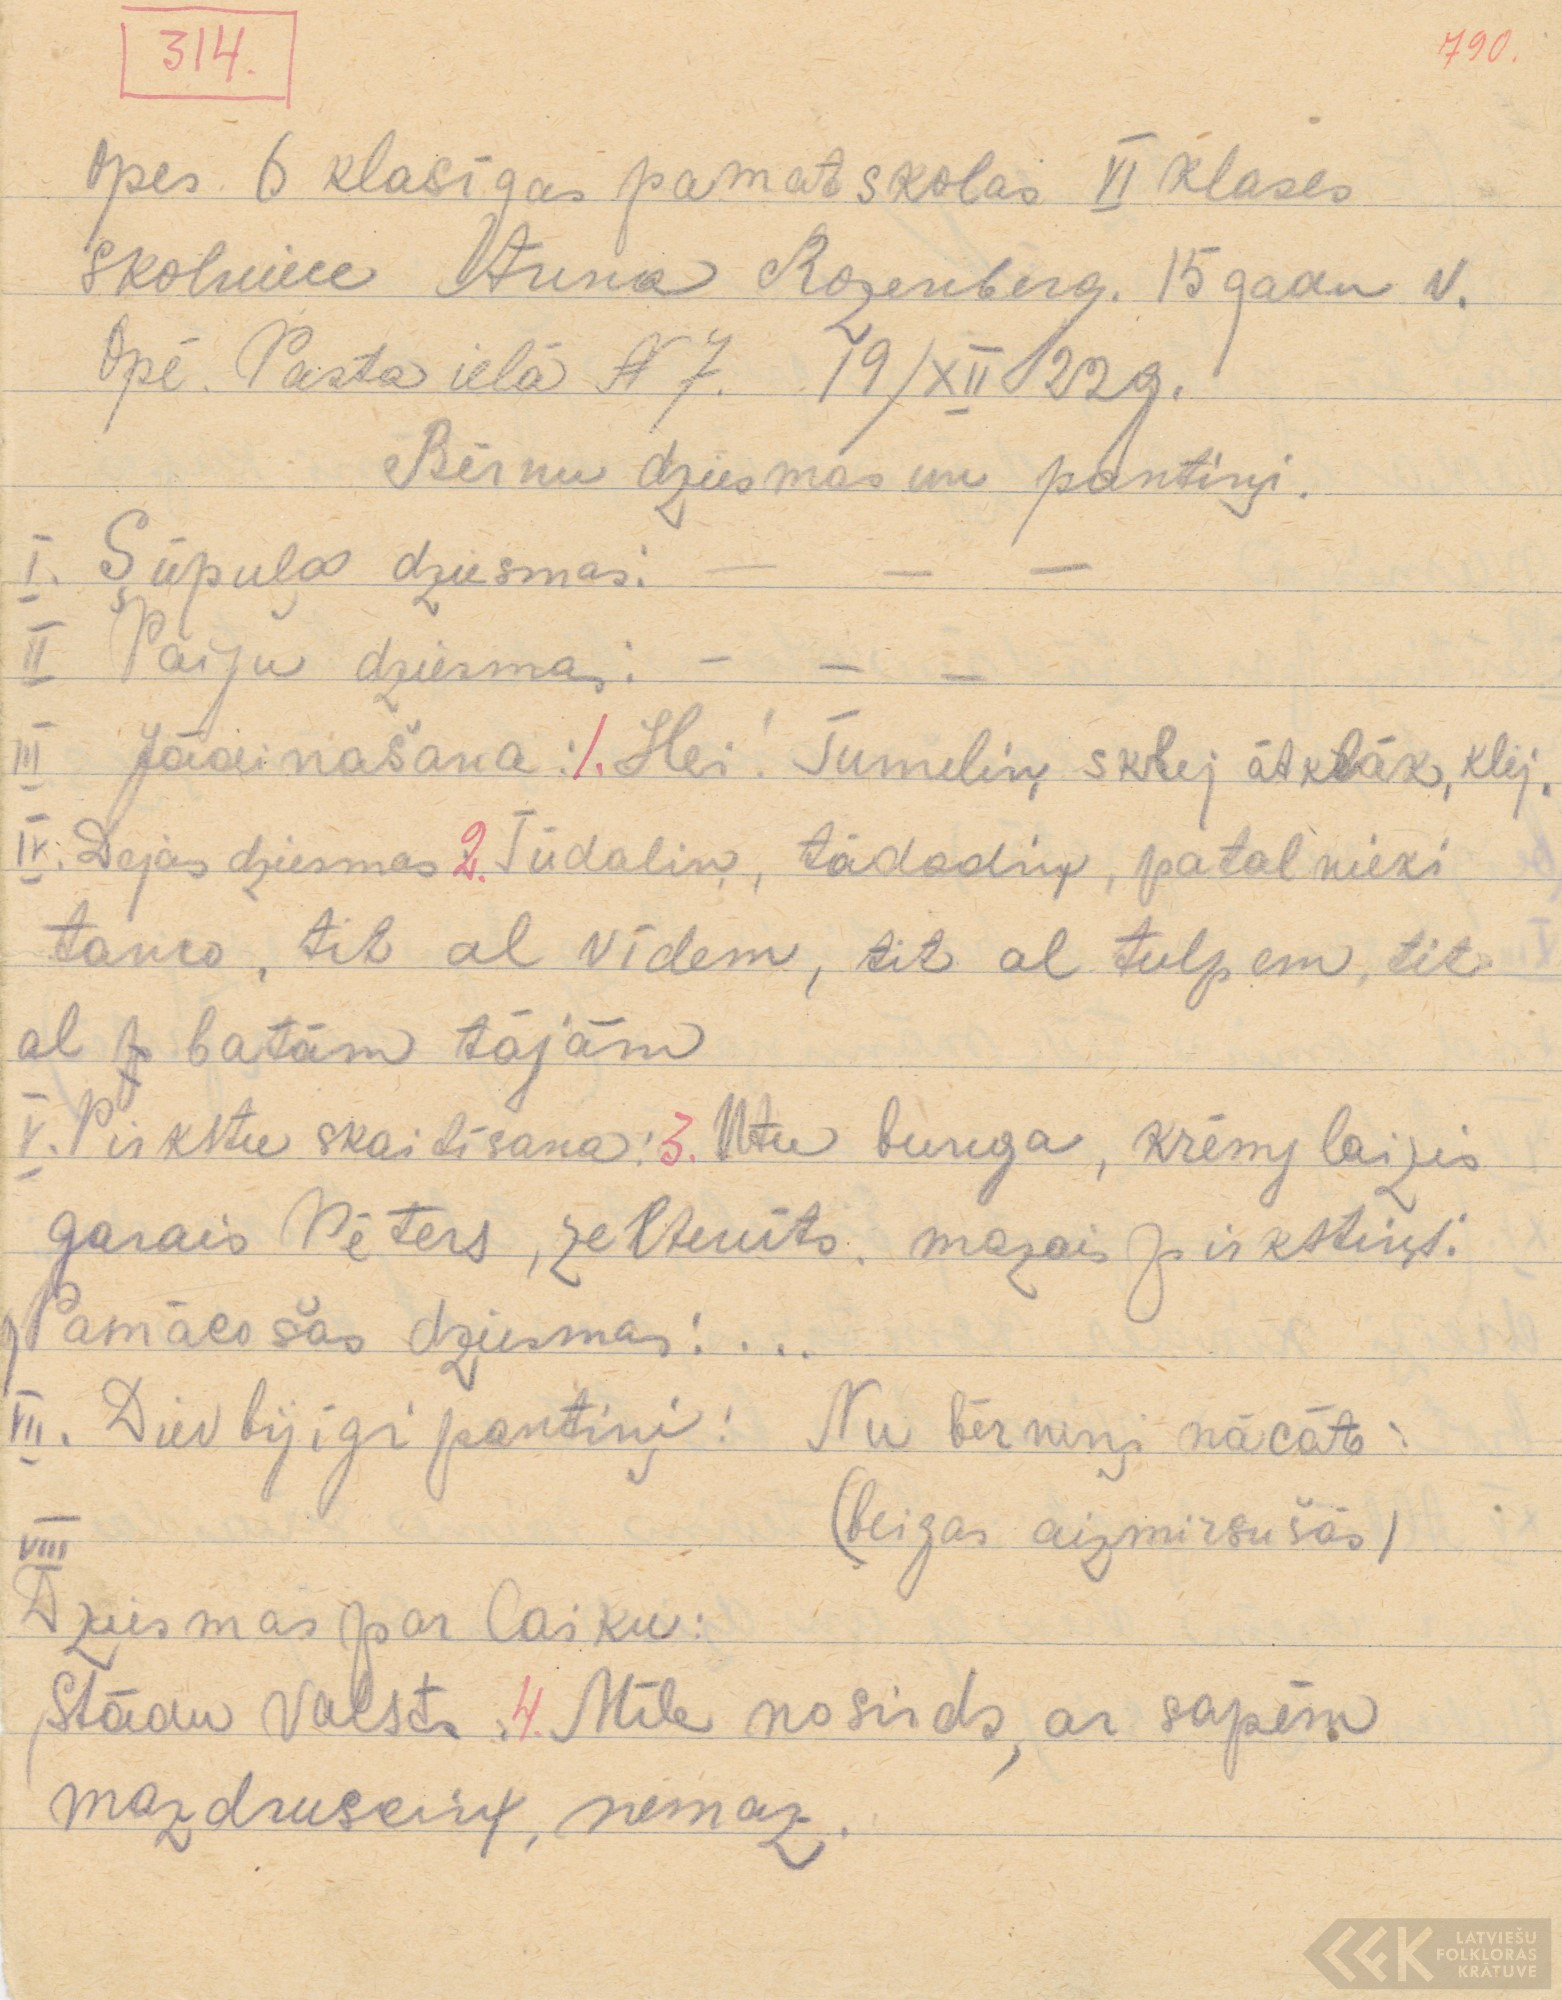 314.
790.
Opes 6 klasīgas pamatskolas VI klases
skolniece Anna Rozenberg. 15 gadu v.
Opē. Pasta ielā N 7. 19/XII 22g.
Bērnu dziesmas un pantiņi.
I. Šūpuļa dziesmas: — — —
II Paiju dziesmas: — — —
III Jādināšana: 1. Hei! Tumeliņ skrej ātrāk, klej.
IV. Dejas dziesmas 2. Tūdaliņ, tādadiņ, patalnieki
tanco, tit al vīdem, tit al tulpem, tit
al batām tājām
V. Pirkstu skaitīsana: 3. Utu bunga, krēmj laizis
garais Pēters, zeltenīts. mazais pirkstiņš.
Pamācošas dziesmas: ...
VII. Dievbijīgi pantiņi: Nu bērniņi nācāt:
(beigas aizmirsušās)
VIII
Dziesmas par laiku:
Stādu valsts: 4. Mīle no sirds, ar sapēm
mazdrusciņ, nemaz.
LATVIEŠU
FOLKLORAS
KRĀTUVE